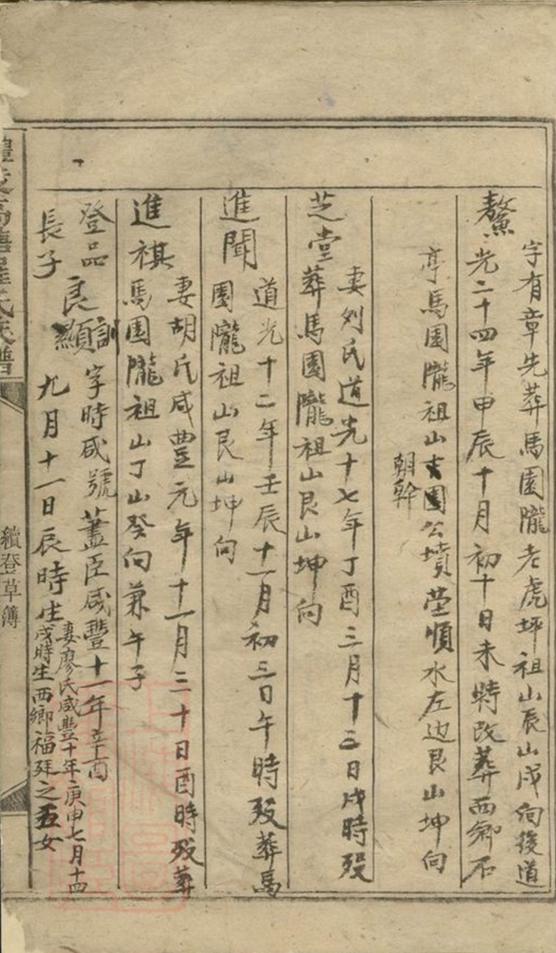 字有章先葬馬園隴老虎坪祖山辰山戌向後道
鰲 光二十四年甲辰十月初十日未時改葬西鄉石
亭馬園隴祖山古園公墳塋順水左边艮山坤向
朝幹
妻刘氏道光十七年丁酉三月十三日戌時殁
芝堂 葬馬園隴祖山艮山坤向
道光十二年壬辰十一月初三日午時殁葬馬
進聞 園隴祖山艮山坤向
妻胡氏咸豊元年十一月三十日酉時殁葬
進祺 馬園隴祖山丁山癸向兼午子
登品 良訓 字時咸號藎臣咸豐十一年辛酉
長子 顯 九月十一日辰時生
妻廖氏咸豐十年庚申七月十四
戌時生西鄉福廷之五女
氏族譜
續登草簿